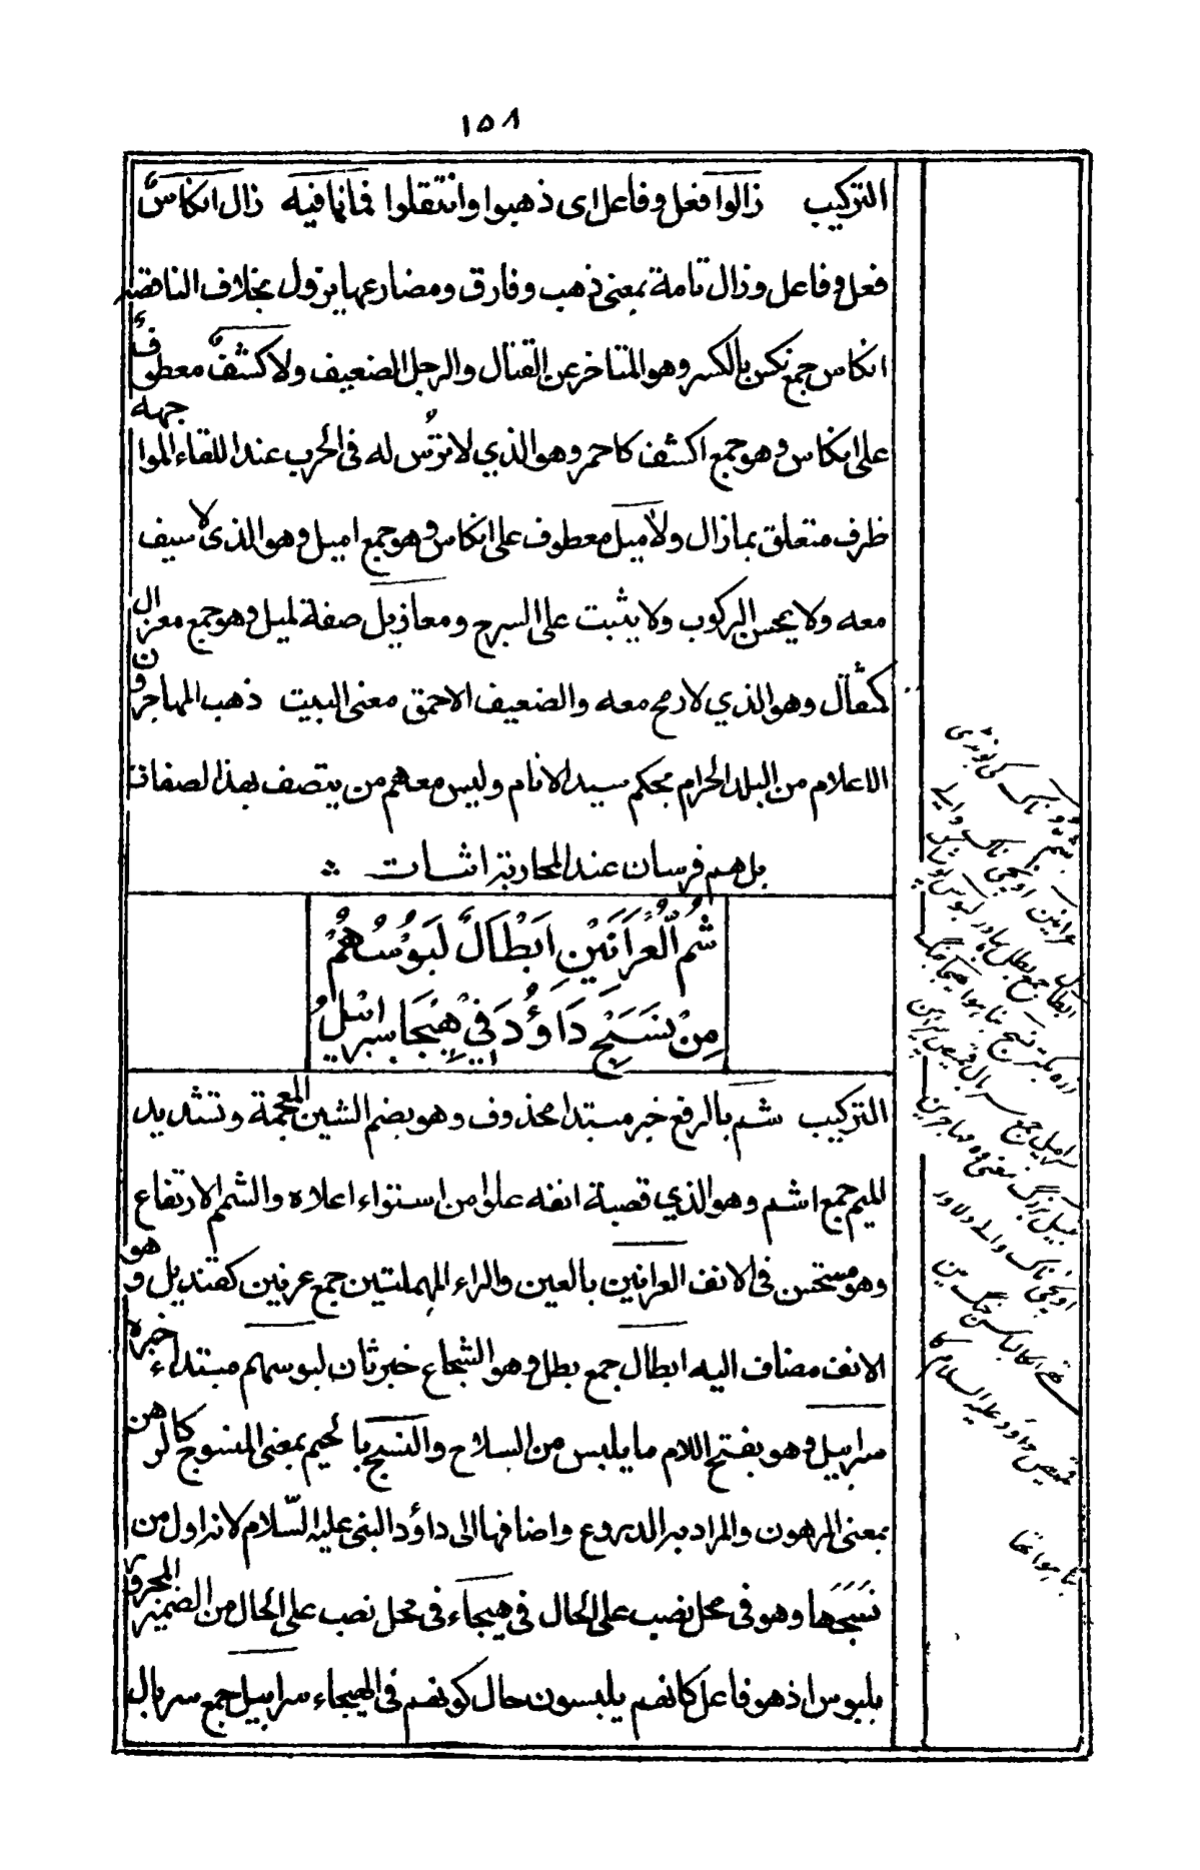 ١٥٨
التركيب زالوا فعل وفاعل اى ذهبوا وانتقلوا فما نافيه زال انكاسٌ
فعل وفاعل وزال تامة بمعنى ذهب وفارق ومضارعها يزول بخلاف الناقصة
انكاس جمع نكس بالكسر وهو المتاخر عن القتال والرجل الضعيف ولا كشفٌ معطوفٌ
على انكاس وهو جمع اكشف كاحمر وهو الذي لا ترس له فى الحرب عند اللقاء المواجهه
ظرف متعلق بما زال ولا ميل معطوف على انكاس وهو جمع اميل وهو الذى لا سيف
معه ولا يحسن الركوب ولا يثبت على السرج ومعازيل صفة لميل وهو جمع معزال
كمثال وهو الذي لا رمح معه والضعيف الاحمق معنى البيت ذهب المهاجرون
الاعلام من البلد الحرام بحكم سيد الانام وليس معهم من يتصف بهذا لصفات
بل هم فرسان عند المحاربة اثبات
شُمُّ الْعَرَانِيْنِ اَبْطَالٌ لَبُوْسُهُمْ
مِنْ نَسْجِ دَاوُدَ فِيْ هَيْجَا سرابيلُ
التركيب شم بالرفع خبر مبتدا محذوف وهو بضم الشين المعجمة وتشديد
الميم جمع اشم وهو الذي قصبة انفه علوا من استواء اعلاه والشم الارتفاع
وهو مستحسن فى الانف العرانين بالعين والراء المهملتين جمع عرنين كقنديل وهو
الانف مضاف اليه ابطال جمع بطل وهو الشجاع خبر ثان لبوسهم مبتداء خبره
سرابيل وهو بفتح اللام ما يلبس من السلاح والنسج بالجيم بمعنى المنسوج كالرهن
بمعنى المرهون والمراد به الدروع واضافها الى داؤد النبى عليه السّلام لانه اول من
نَسَجَها وهو فى محل نصب على الحال فى هيجاء فى محل نصب على الحال من الضمير المجرور
بلبوس اذ هو فاعل كانهم يلبسون حال كونهم فى الهيجاء سرابيل جمع سربال
عرانين اونچى ناك
ابطال جمع بطل بهادر لبوس
نسج بنا هوا هيجا جنگ
سرابيل جمع سربال قميص
اونچى ناك والے دلاور
قميص داؤد عليه السلام كا
بنا هوا تها